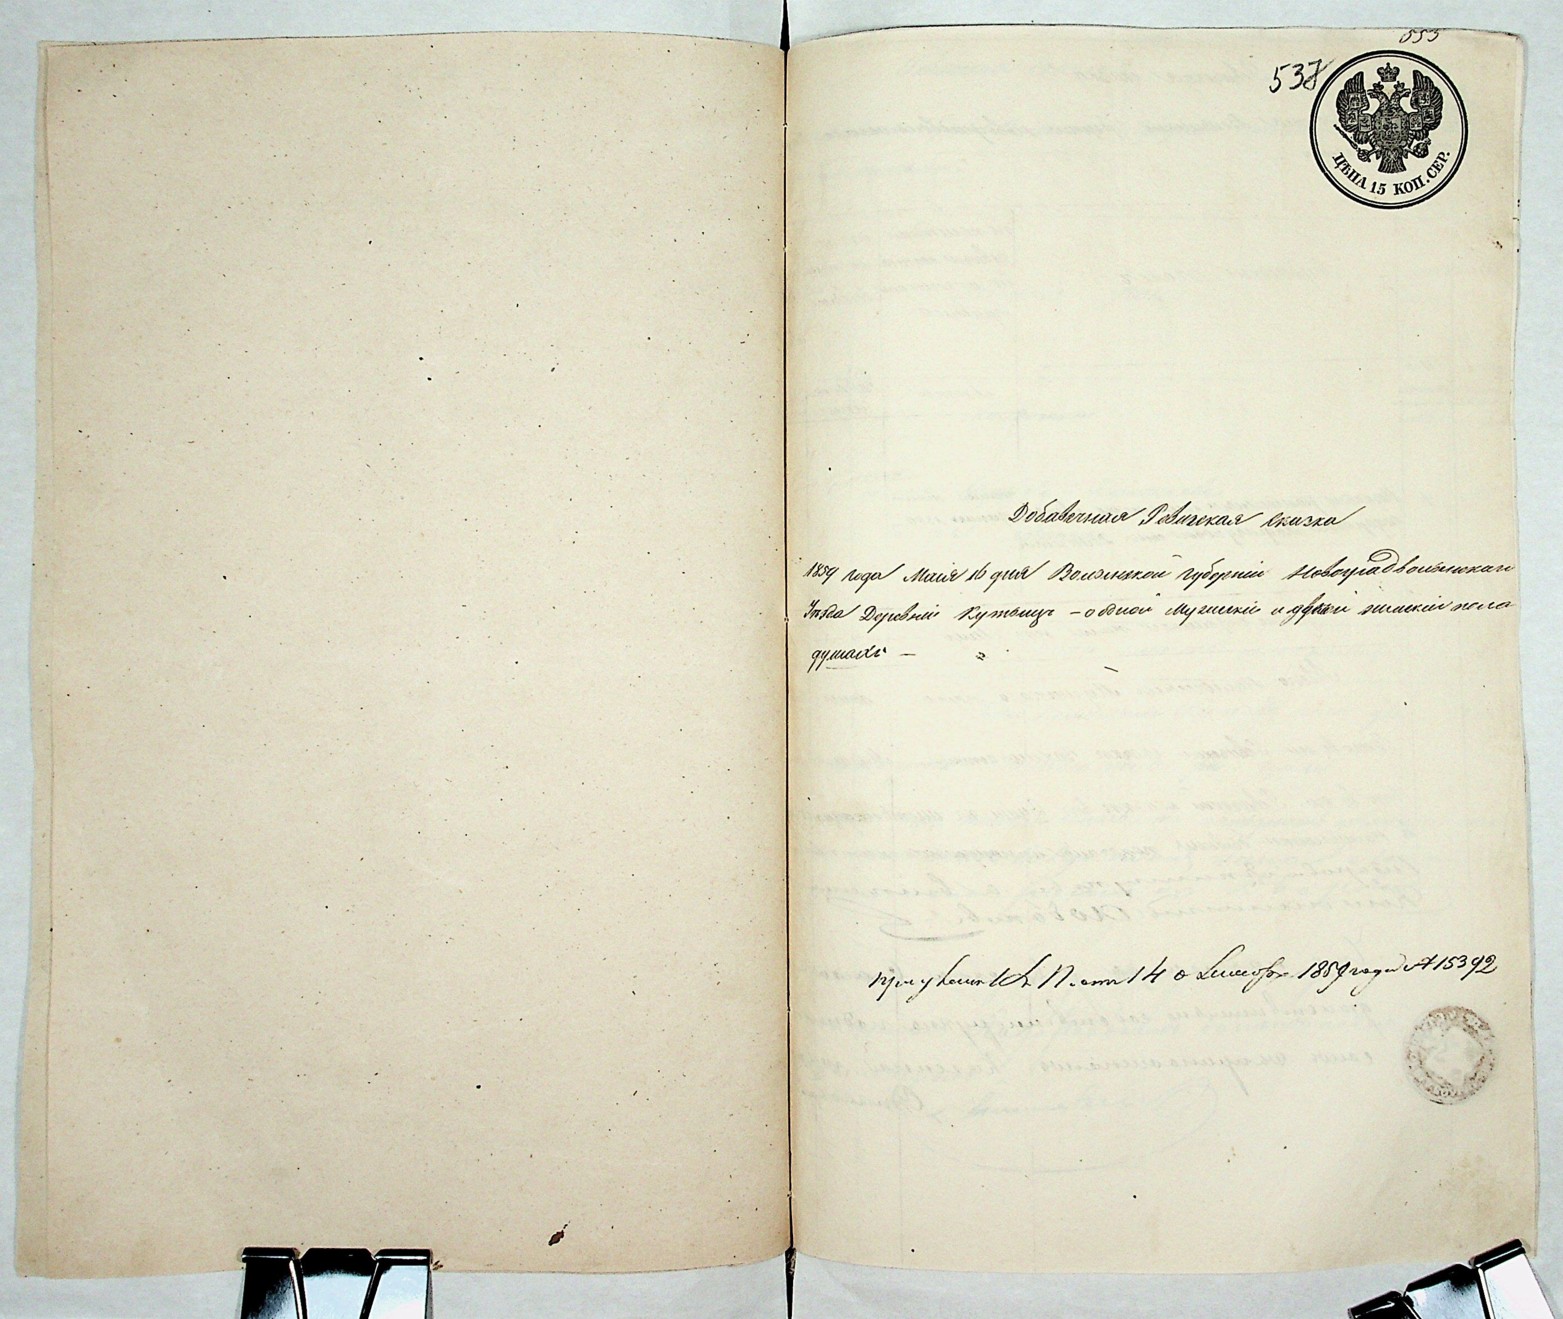 555
537
ЦѢНА 15 КОП. СЕР.
Добавечная Ревизская сказка
1859 года Маія 16 дня Волынской губерніи Новоградволынскаго
Уѣзда Деревни Кутыщъ – о одной Мужеский и двухъ женский пола
душахъ –
14 1859 года № 15392